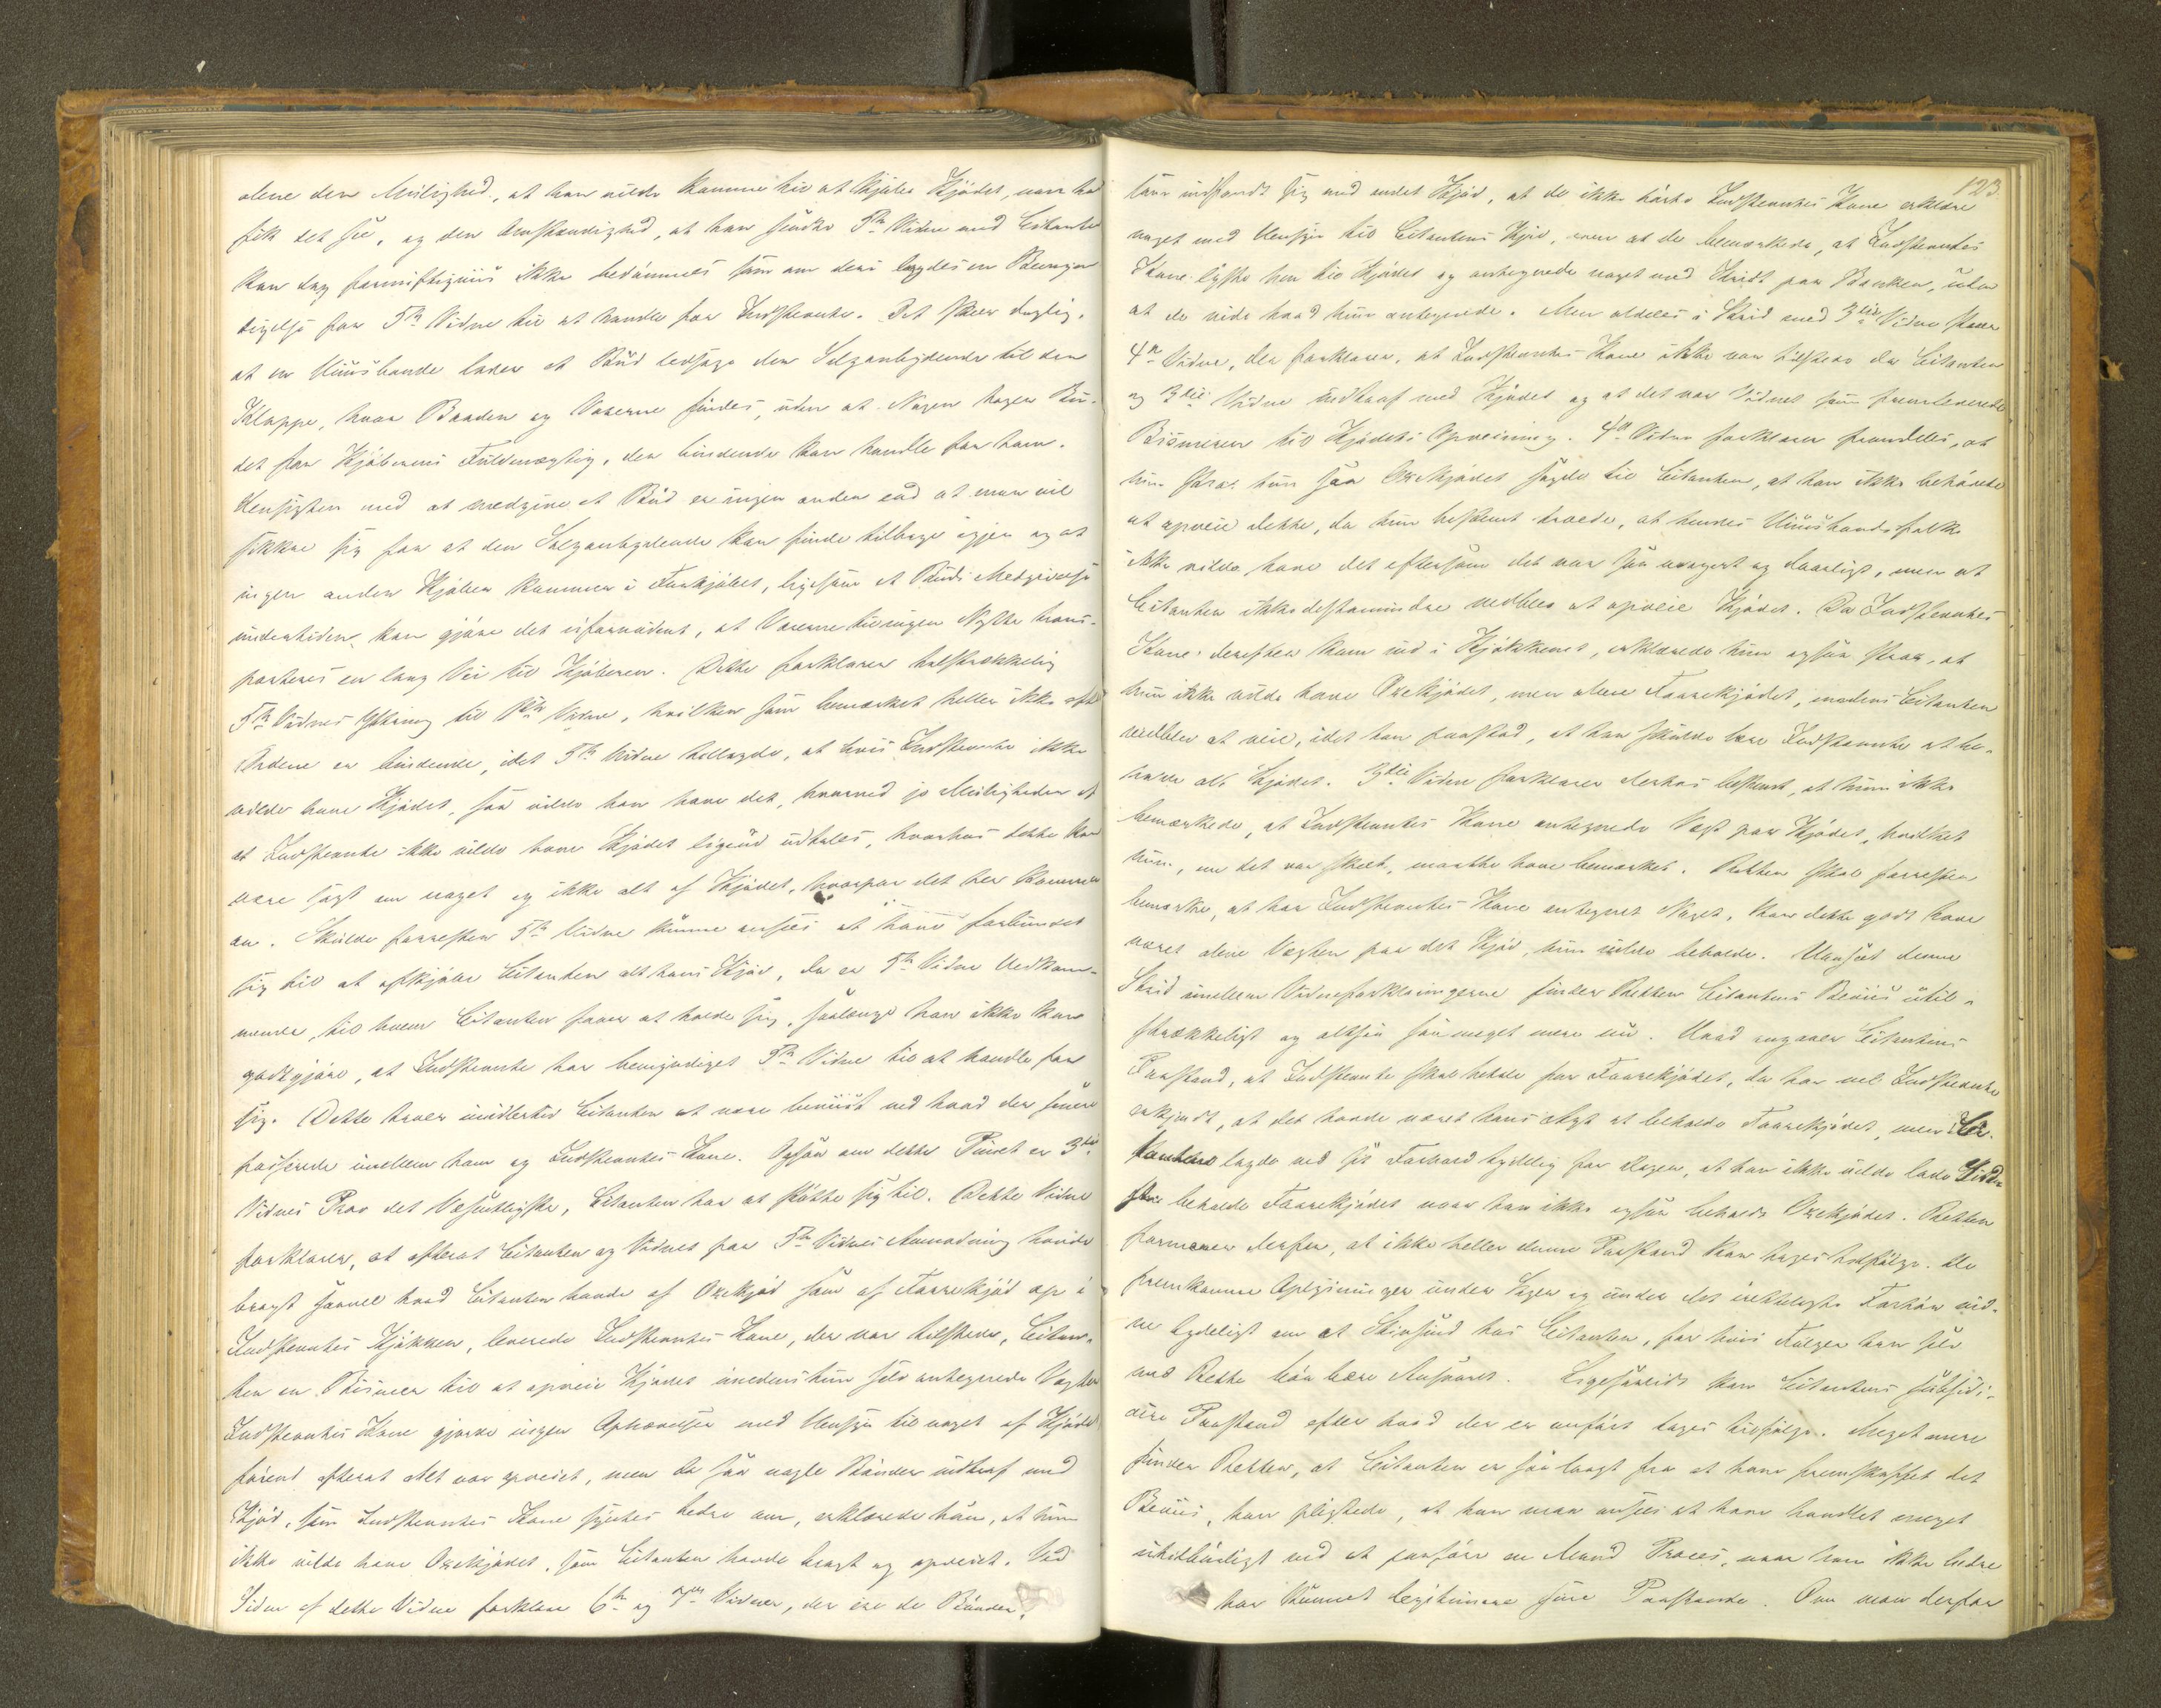 alene den Mulighed, at han vilde komme til at kjøbe Kjødet, naar han
fik det see, og den Omstændighed, at han sendte 5te Vidne med Citanten
kan dog fornuftigviis ikke bedømmes som om deri lagdes en Bemyn-
digelse for 5te Vidne til at handle for Indstevnte. Det skeer daglig,
at en Huusbonde lader et Bud ledsage den Salganbydende til den
Kloppe, hvor Baaden og Varerne findes, uden at Nogen tager Bu-
det for Kjøberens Fuldmægtig, der bindende kan handle for ham.
Hensigten med at medgive et Bud er ingen anden end at man vil
sikkre sig for at den Salganbydende kan finde tilbage igjen og at
ingen anden Kjøber kommer i Forkjøbet, ligesom et Buds Medgivelse
undertiden kan gjøre det ufornødent, at Varerne til ingen Nytte trans-
porteres en lang Vei til Kjøberen. Dette forklarer tilstrækkelig
5te Vidnes Yttring til Vidne, hvilken som bemærket heller ikke efter
Ordene er bindende, idet 5te Vidne tillagde, at hvis Indstevnte ikke
vilde have Kjødet, saa vilde han have det, hvorved jo Muligheden af
at Indstevnte ikke vilde have Kjødet ligeud udtales, hvorhos dette kan
være sagt om noget og ikke alt af Kjødet, hvorpaa det her kommer
an. Skulde forresten 5te Vidne kunne ansees at have forbundet
sig til at afkjøbe Citanten alt hans Kjød, da er 5te Vidne Vedkom-
mende, til hvem Citanten faaer at holde sig, saalænge han ikke kan
godtgjøre, at Indstevnte har bemyndiget 5te Vidne til at handle for
sig. Dette troer imidlertid Citanten at være beviist ved hvad der senere
passerede imellem ham og Indstevntes Kone. Ogsaa om dette Punct er 3die
Vidnes Prov det Væsentligste, Citanten har at støtte sig til. Dette Vidne
forklarer, at efterat Citanten og Vidnet paa 5te Vidnes Anmodning havde
bragt saavel hvad Citanten havde af Oxekjød som af Faarekjød op i
Indstevntes Kjøkken, leverede Indstevntes Kone, der var tilstede, Citan-
ten en Bismer til at opveie Kjødet imedens hun selv antegnede Vægten
Indstevntes Kone gjorde ingen Ophævelser med Hensyn til noget af Kjødet
førend efterat Alt var opveiet, men da saa nogle Bønder indtraf med
Kjød, som Indstevntes Kone syntes bedre om, erklærede hun, at hun
ikke vilde have Oxekjødet, som Citanten havde bragt og opveiet. Ved
Siden af dette Vidne forklare 6te og 7de Vidner, der ere de Bønder,
123
som indfandt sig med andet Kjød, at de ikke hørte Indstevntes Kone erklære
noget med Hensyn til Citantens Kjød, men at de bemærkede, at Indstevntes
Kone lyste hen til Kjødet og antegnede noget med Kridt paa Bænken, uden
at de vide hvad hun antegnede. Men aldeles i Strid med 3die Vidne staaer
4de Vidne, der forklarer, at Indstevntes Kone ikke var tilstede da Citanten
og 3die Vidne indtraf med Kjødet og at det var Vidnet som fremleverede
Bismeren til Kjødets Opveining. 4de Vidne forklarer fremdeles, at
hun strax hun saa Oxekjødet sagde til Citanten, at han ikke behøvede
at opveie dette, da hun bestemt troede, at hendes Huusbondsfolk
ikke vilde have det eftersom det var saa magert og daarligt, men at
Citanten ikkedestomindre vedblev at opveie Kjødet. Da Indstevntes
Kone derefter kom ind i Kjøkkenet, erklærede hun ogsaa strax, at
hun ikke vilde have Oxekjødet, men alene Faarekjødet, imedens Citanten
vedblev at veie, idet han paastod, at han skulde lære Indstevnte at be-
tale alt Kjødet. 3die Vidne forklarer derhos bestemt, at hun ikke
bemærkede, at Indstevntes Kone antegnede Vægt paa Kjødet, hvilket
hun, om det var skeet, maatte have bemærket. Retten skal forresten
bemærke, at har Indstevntes Kone antegnet Noget, kan dette godt have
været alene Vægten paa det Kjød, hun vilde beholde. Uanseet denne
Strid imellem Vidneforklaringerne finder Retten Citantens Beviis util-
strækkeligt og altsaa saa meget mere nu. Hvad angaaer Citantens
Paastand, at Indstevnte skal betale for Faarekjødet, da har vel Indstevnte
erkjendt, at det havde været hans Agt at beholde Faarekjødet, men Ci-
tanten lagde ved sit Forhold tydelig for Dagen, at han ikke vilde lade Ind-
stevnte beholde Faarekjødet naar han ikke ogsaa beholdt Oxekjødet. Retten
formener derfor, at ikke heller denne Paastand kan tages tilfølge. De
fremkomne Oplysninger under Sagen og under det irettelagte Forhør vid-
ne tydeligt om et Stivsind hos Citanten, for hvis Følger han selv
med Rette bør bære Ansvaret. Ligesaalidt kan Citantens subsidi-
aire Paastand efter hvad der er anført tages tilfølge. Meget mere
finder Retten, at Citanten er saa langt fra at have fremskaffet det
Beviis, han pligtede, at han maa ansees at have handlet meget
utilbørligt ved at paaføre en Mand Proces, naar han ikke bedre
har kunnet legitimere sine Paastande. Om man derfor